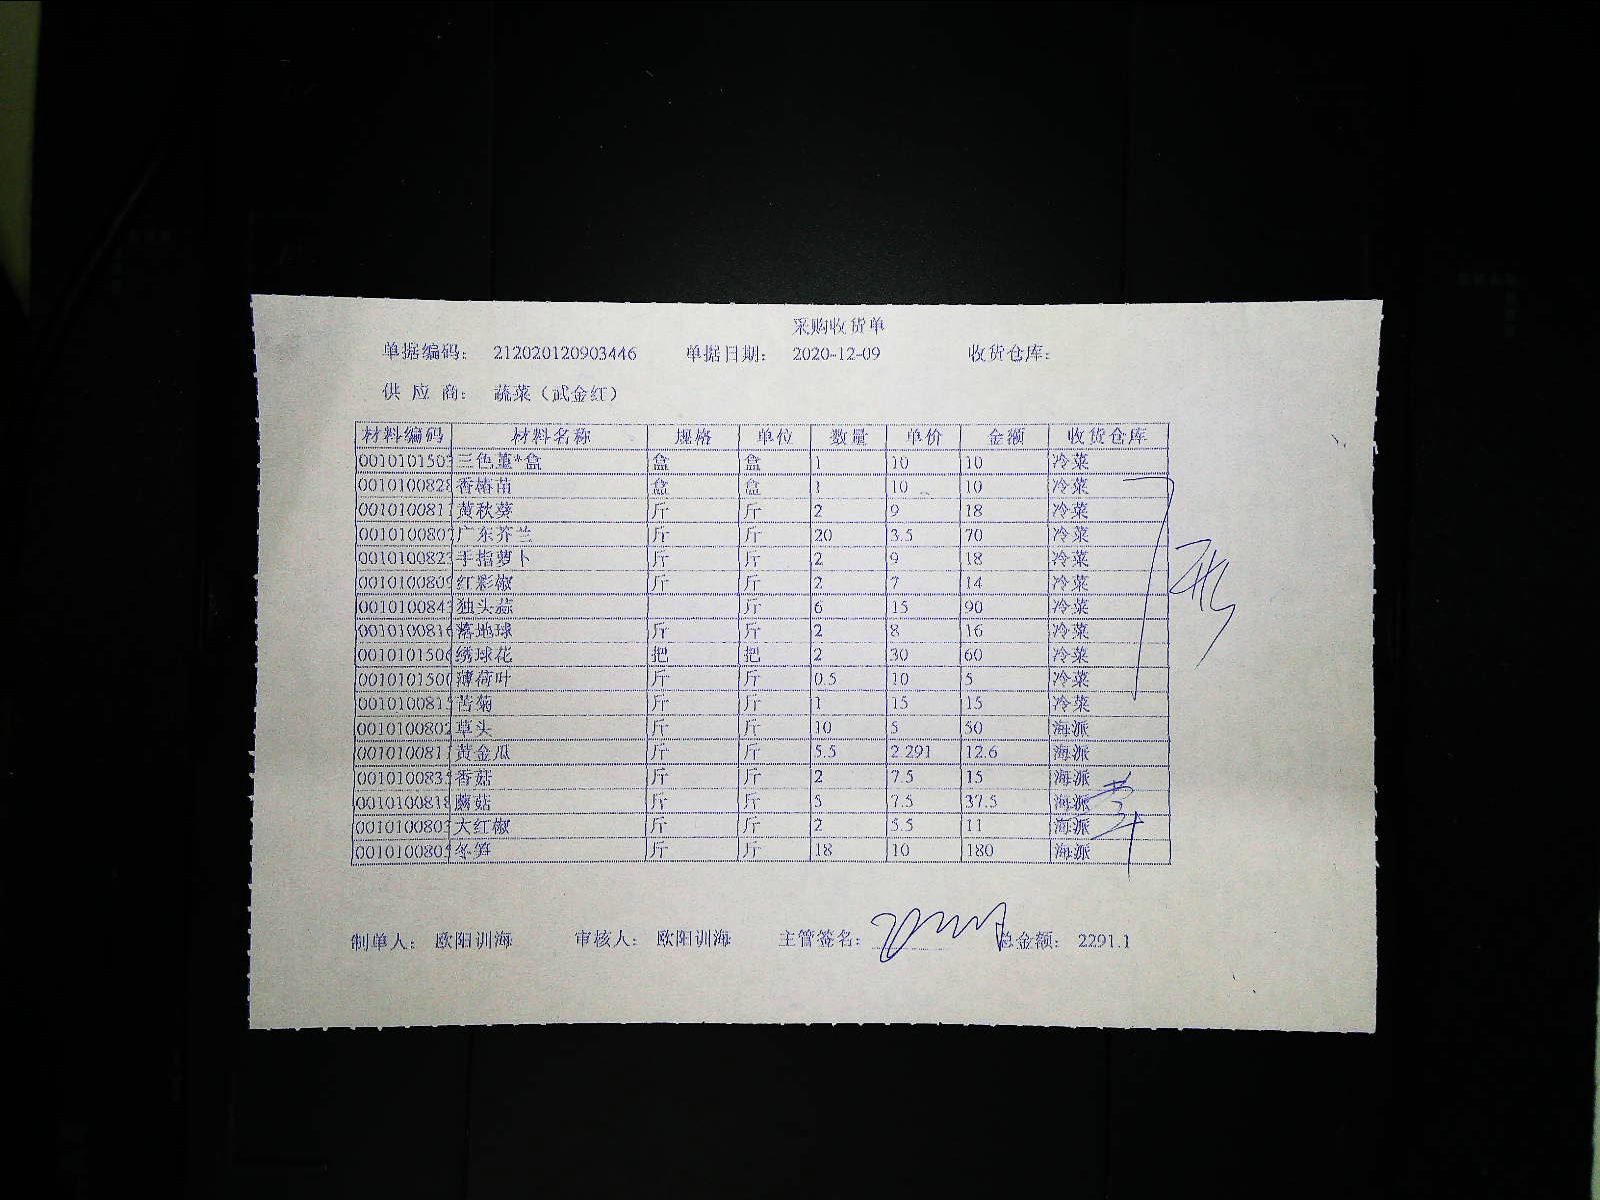 采购收货单
单据编码： 212020120903446 单据日期： 2020-12-09 收货仓库：
供 应 商： 蔬菜（武金红）
材料编码 材料名称 规格 单位 数量 单价 金额 收货仓库
0010101503 三色堇*盒 盒 盒 1 10 10 冷菜
0010100828 香椿苗 盒 盒 1 10 10 冷菜
001010081 黄秋葵 斤 斤 2 9 18 冷菜
001010080 广东芥兰 斤 斤 20 3.5 70 冷菜
001010082 手指萝卜 斤 斤 2 9 18 冷菜
001010080 红彩椒 斤 斤 2 7 14 冷菜
001010084 独头蒜 斤 6 15 90 冷菜
001010081 落地球 斤 斤 2 8 16 冷菜
001010150 绣球花 把 把 2 30 60 冷菜
001010150 薄荷叶 斤 斤 0.5 10 5 冷菜
001010081 苦菊 斤 斤 1 15 15 冷菜
001010080 草头 斤 斤 10 5 50 海派
001010081 黄金瓜 斤 斤 5.5 2.291 12.6 海派
001010083 香菇 斤 斤 2 7.5 15 海派
001010081 蘑菇 斤 斤 5 7.5 37.5 海派
001010080 大红椒 斤 斤 2 5.5 11 海派
001010080 冬笋 斤 斤 18 10 180 海派
制单人： 欧阳训海 审核人： 欧阳训海 主管签名： 总金额： 2291.1